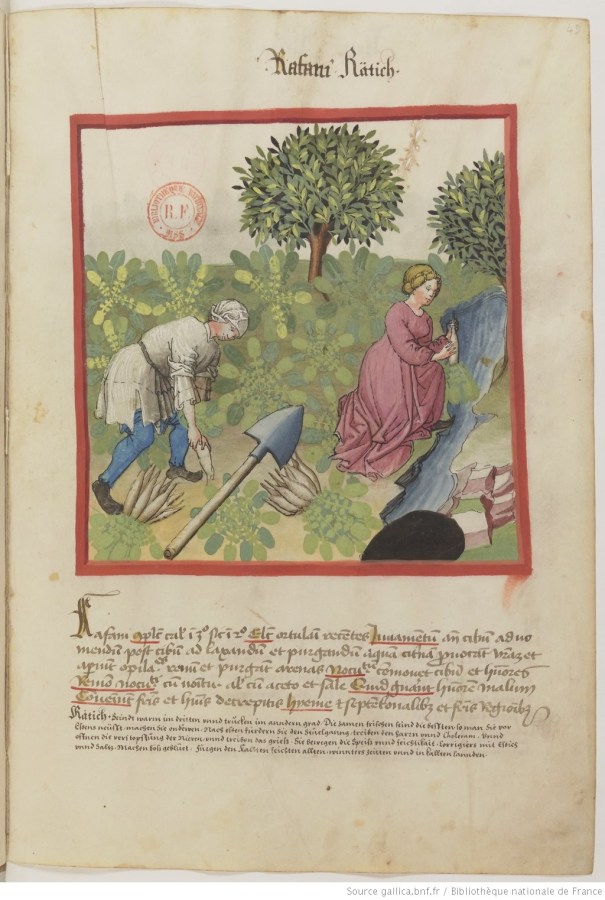 43
Rafani Rätich.
BIBLIOTHEQUE
B. F.
MSS
Rafani ꝯplẽ cal' ĩ 3° sic̃ ĩ 2° Elc̃ ortulani recẽtes Iuuamẽtũ añ cibũ ad uo
mendũ post cibũ ad laxandũ et purgandũ
et apiũt opila renũ et purgãt arenas Nocu comouet cibũ et hũores
Remõ nocu cum aceto et sale Quid gñant hũorẽ malum
Cõueniũt fris et hũis decrepitis hyeme septẽtrionalibz et fris Regiõibz
Rätich. Seindt warm im dritten vnnd trucken im anndern grad. Die samen frischen seind die besten so man Sie vor
Essens neüsst machen Sie vndewen. Nach essen fürdern Sie den Stuelganng, treiben den Haren vnnd Choleram. Vnnd
offnen die verstopffung der Nieren, vnnd treiben das griess. Sie bewegen die Speiss vnnd feichtikait. Corrigiers mit Essich
vnnd Saltz. Machen böss geblüet. Füegen den Kalten feichten alten, winnters zeitten vnnd in kalten Lannden.
Source gallica.bnf.fr / Bibliothèque nationale de France